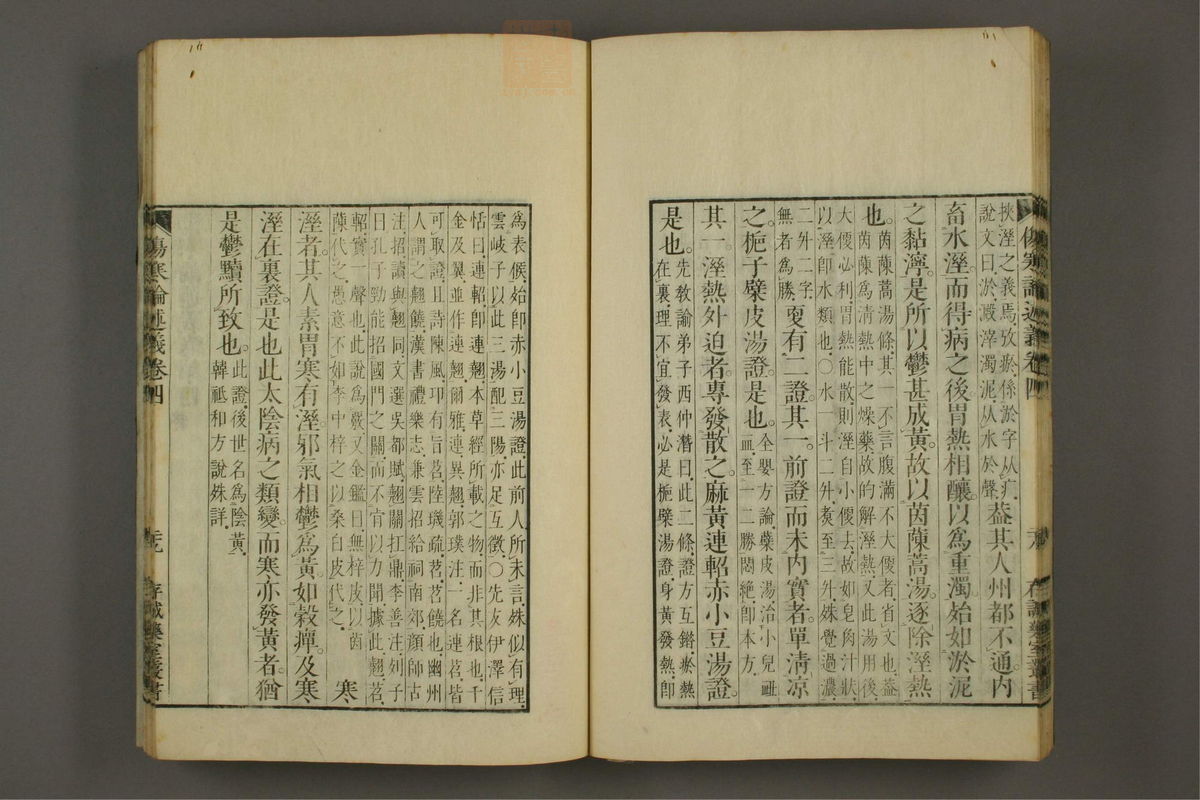 傷寒論述義卷四
存誠藥室叢書
挾溼之義焉攷瘀係淤字从疒
說文曰淤澱滓濁泥从水於聲
葢其人州都不通內
畜水溼而得病之後胃熱相釀以爲重濁始如淤泥
之黏濘是所以鬱甚成黃故以茵蔯蒿湯逐除溼熱
也
茵蔯蒿湯條其一不言腹滿不大便者省文也葢
茵蔯爲淸熱中之燥藥故的解溼熱又此湯用後
大便必利胃熱能散則溼自小便去故如皂角汁狀
以溼卽水類也〇水一斗二升煑至三升殊覺過濃
二升二字
無者爲勝
更有二證其一前證而未內實者單淸涼
之梔子糵皮湯證是也
全嬰方論糵皮湯治小兒衄
血至一二勝悶絶卽本方
其一溼熱外迫者專發散之麻黃連軺赤小豆湯證
是也
先敎諭弟子西仲潛曰此二條證方互錯瘀熱
在裏理不宜發表必是梔糵湯證身黃發熱卽
爲表候始卽赤小豆湯證此前人所未言殊似有理
雲岐子以此三湯配三陽亦足互徵〇先友伊澤信
恬曰連軺卽連翹本草經所載之物而非其根也千
金及翼並作連翹爾雅連異翹郭璞注一名連苕皆
可取證且詩陳風卭有旨苕陸璣疏苕苕饒也幽州
人謂之翹饒漢書禮樂志兼雲招給祠南郊顏師古
注招讀與翹同文選吳都賦翹關扛鼎李善注列子
曰孔子勁能招國門之關而不肯以力聞據此翹苕
軺實一聲也此說爲覈又金鑑曰無梓皮以茵
蔯代之愚意不如李中梓之以桑白皮代之
寒
溼者其人素胃寒有溼邪氣相鬱爲黃如穀癉及寒
溼在裏證是也此太陰病之類變而寒亦發黃者猶
是鬱黷所致也
此證後世名爲陰黃
韓祗和方說殊詳
傷寒論述義卷四
存誠藥室叢書